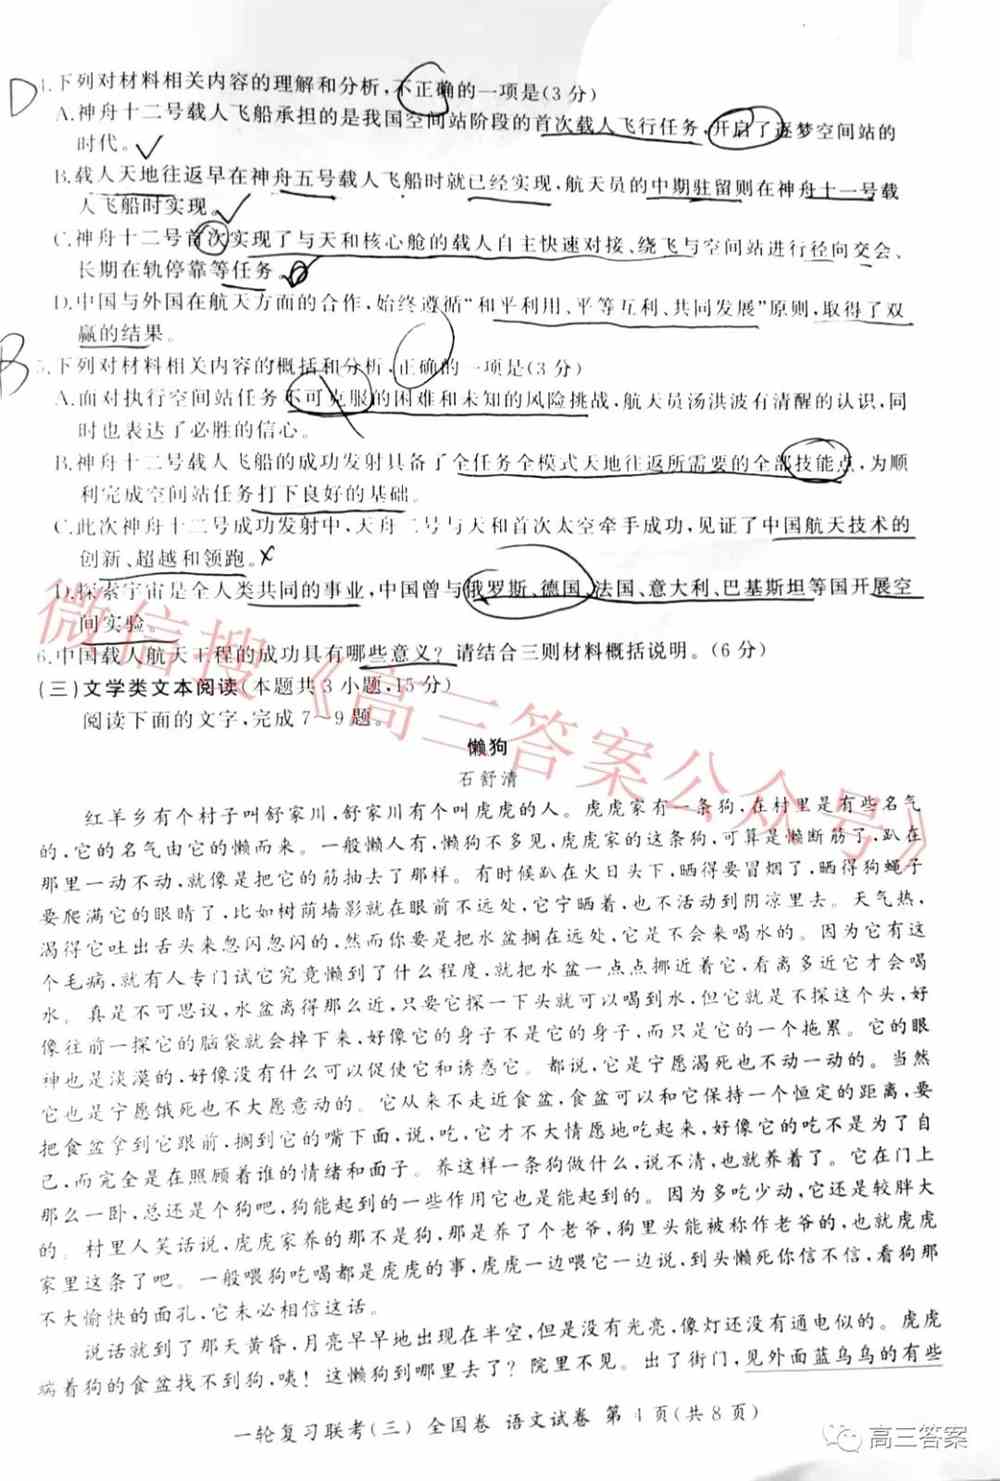 D 4.下列对材料相关内容的理解和分析,不正确的一项是(3分)
A.神舟十二号载人飞船承担的是我国空间站阶段的首次载人飞行任务,开启了逐梦空间站的
时代。
B.载人天地往返早在神舟五号载人飞船时就已经实现,航天员的中期驻留则在神舟十一号载
人飞船时实现。
C.神舟十二号首次实现了与天和核心舱的载人自主快速对接、绕飞与空间站进行径向交会、
长期在轨停靠等任务。
D.中国与外国在航天方面的合作,始终遵循“和平利用、平等互利、共同发展”原则,取得了双
赢的结果。
B 5.下列对材料相关内容的概括和分析,正确的一项是(3分)
A.面对执行空间站任务不可克服的困难和未知的风险挑战,航天员汤洪波有清醒的认识,同
时也表达了必胜的信心。
B.神舟十二号载人飞船的成功发射具备了全任务全模式天地往返所需要的全部技能点,为顺
利完成空间站任务打下良好的基础。
C.此次神舟十二号成功发射中,天舟二号与天和首次太空牵手成功,见证了中国航天技术的
创新、超越和领跑。
D.探索宇宙是全人类共同的事业,中国曾与俄罗斯、德国、法国、意大利、巴基斯坦等国开展空
间实验。
6.中国载人航天工程的成功具有哪些意义?请结合三则材料概括说明。(6分)
(三)文学类文本阅读(本题共3小题,15分)
阅读下面的文字,完成7~9题。
懒狗
石舒清
红羊乡有个村子叫舒家川,舒家川有个叫虎虎的人。虎虎家有一条狗,在村里是有些名气
的,它的名气由它的懒而来。一般懒人有,懒狗不多见,虎虎家的这条狗,可算是懒断筋了,趴在
那里一动不动,就像是把它的筋抽去了那样。有时候趴在火日头下,晒得要冒烟了,晒得狗蝇子
要爬满它的眼睛了,比如树荫墙影就在眼前不远处,它宁晒着,也不活动到阴凉里去。天气热,
渴得它吐出舌头来忽闪忽闪的,然而你要是把水盆搁在远处,它是不会来喝水的。因为它有这
个毛病,就有人专门试它究竟懒到了什么程度,就把水盆一点点挪近着它,看离多近它才会喝
水。真是不可思议,水盆离得那么近,只要它探一下头就可以喝到水,但它就是不探这个头,好
像往前一探它的脑袋就会掉下来,好像它的身子不是它的身子,而只是它的一个拖累。它的眼
神也是淡漠的,好像没有什么可以促使它和诱惑它。都说,它是宁愿渴死也不动一动的。当然
它也是宁愿饿死也不大愿意动的。它从来不走近食盆,食盆可以和它保持一个恒定的距离,要
把食盆拿到它跟前,搁到它的嘴下面,说,吃,它才不大情愿地吃起来,好像它的吃不是为了自
己,而完全是在照顾着谁的情绪和面子。养这样一条狗做什么,说不清,也就养着了。它在门上
那么一卧,总还是个狗吧,狗能起到的一些作用它也是能起到的。因为多吃少动,它还是较胖大
的。村里人笑话说,虎虎家养的那不是狗,那是养了个老爷,狗里头能被称作老爷的,也就虎虎
家里这条了吧。一般喂狗吃喝都是虎虎的事,虎虎一边喂它一边说,到头懒死你信不信,看狗那
不大愉快的面孔,它未必相信这话。
说话就到了那天黄昏,月亮早早地出现在半空,但是没有光亮,像灯还没有通电似的。虎虎
端着狗的食盆找不到狗,咦!这懒狗到哪里去了?院里不见。出了街门,见外面蓝乌乌的有些
一轮复习联考(三) 全国卷 语文试卷 第4页(共8页)
微信搜《高三答案公众号》
高三答案